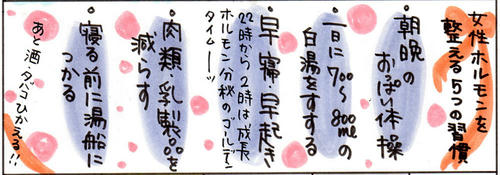 女性ホルモンを
整える5つの習慣
・朝晩の
おっぱい体操
・一日に700〜800mlの
白湯をすする
・早寝・早起き
22時から2時は成長
ホルモン分秘のゴールデン
タイムーッ
・肉類・乳製品を
減らす
・寝る前に湯船に
つかる
あと酒・タバコひかえる!!